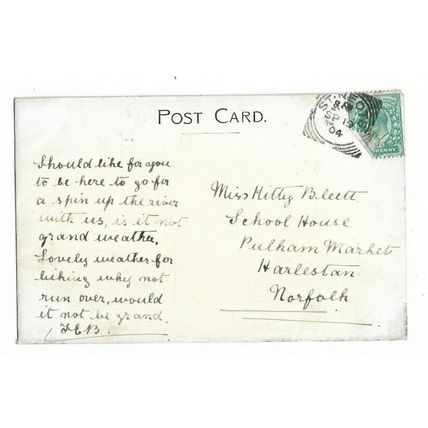 POST CARD.
ST. NEOTS
8. PM
SP 12
04
PENNY
Should like for you
to be here to go for
a spin up the river
with us, is it not
grand weather,
Lovely weather for
biking why not
run over, would
it not be grand.
Miss Kitty Bleett
School House
Pulham Market
Harlestan
Norfolk